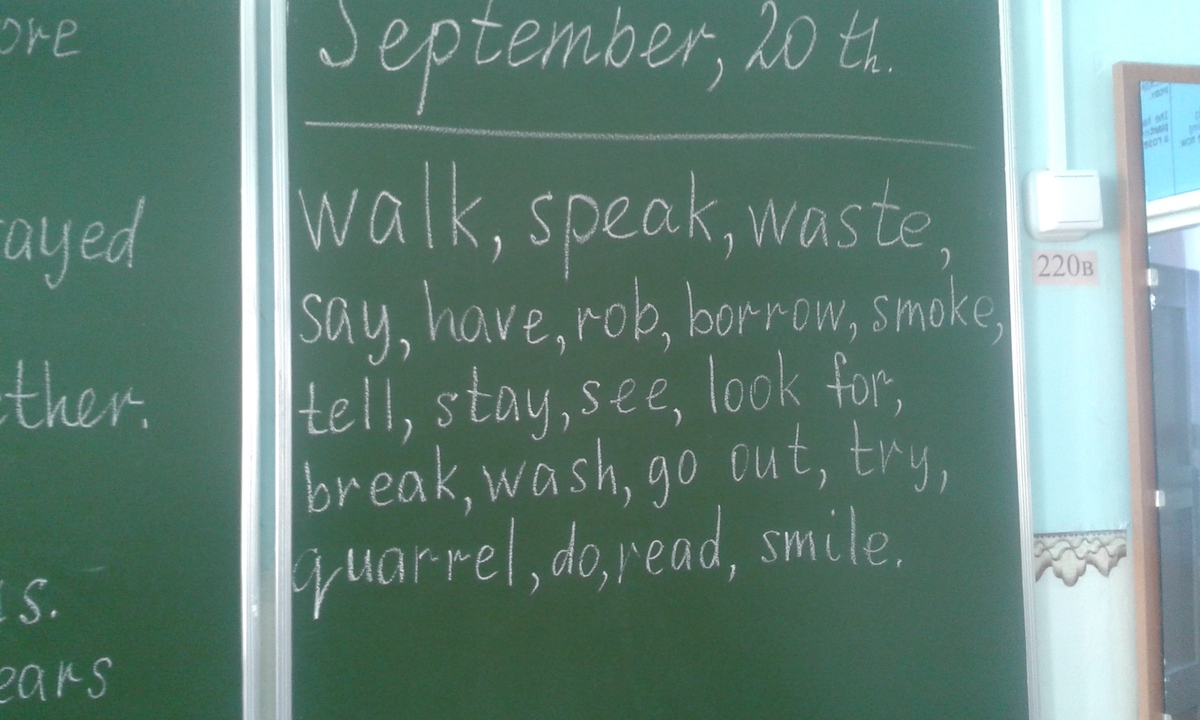 September, 20 th.
walk, speak, waste,
say, have, rob, borrow, smoke,
tell, stay, see, look for,
break, wash, go out, try,
quarrel, do, read, smile.
ayed
ther.
s.
ears
220в